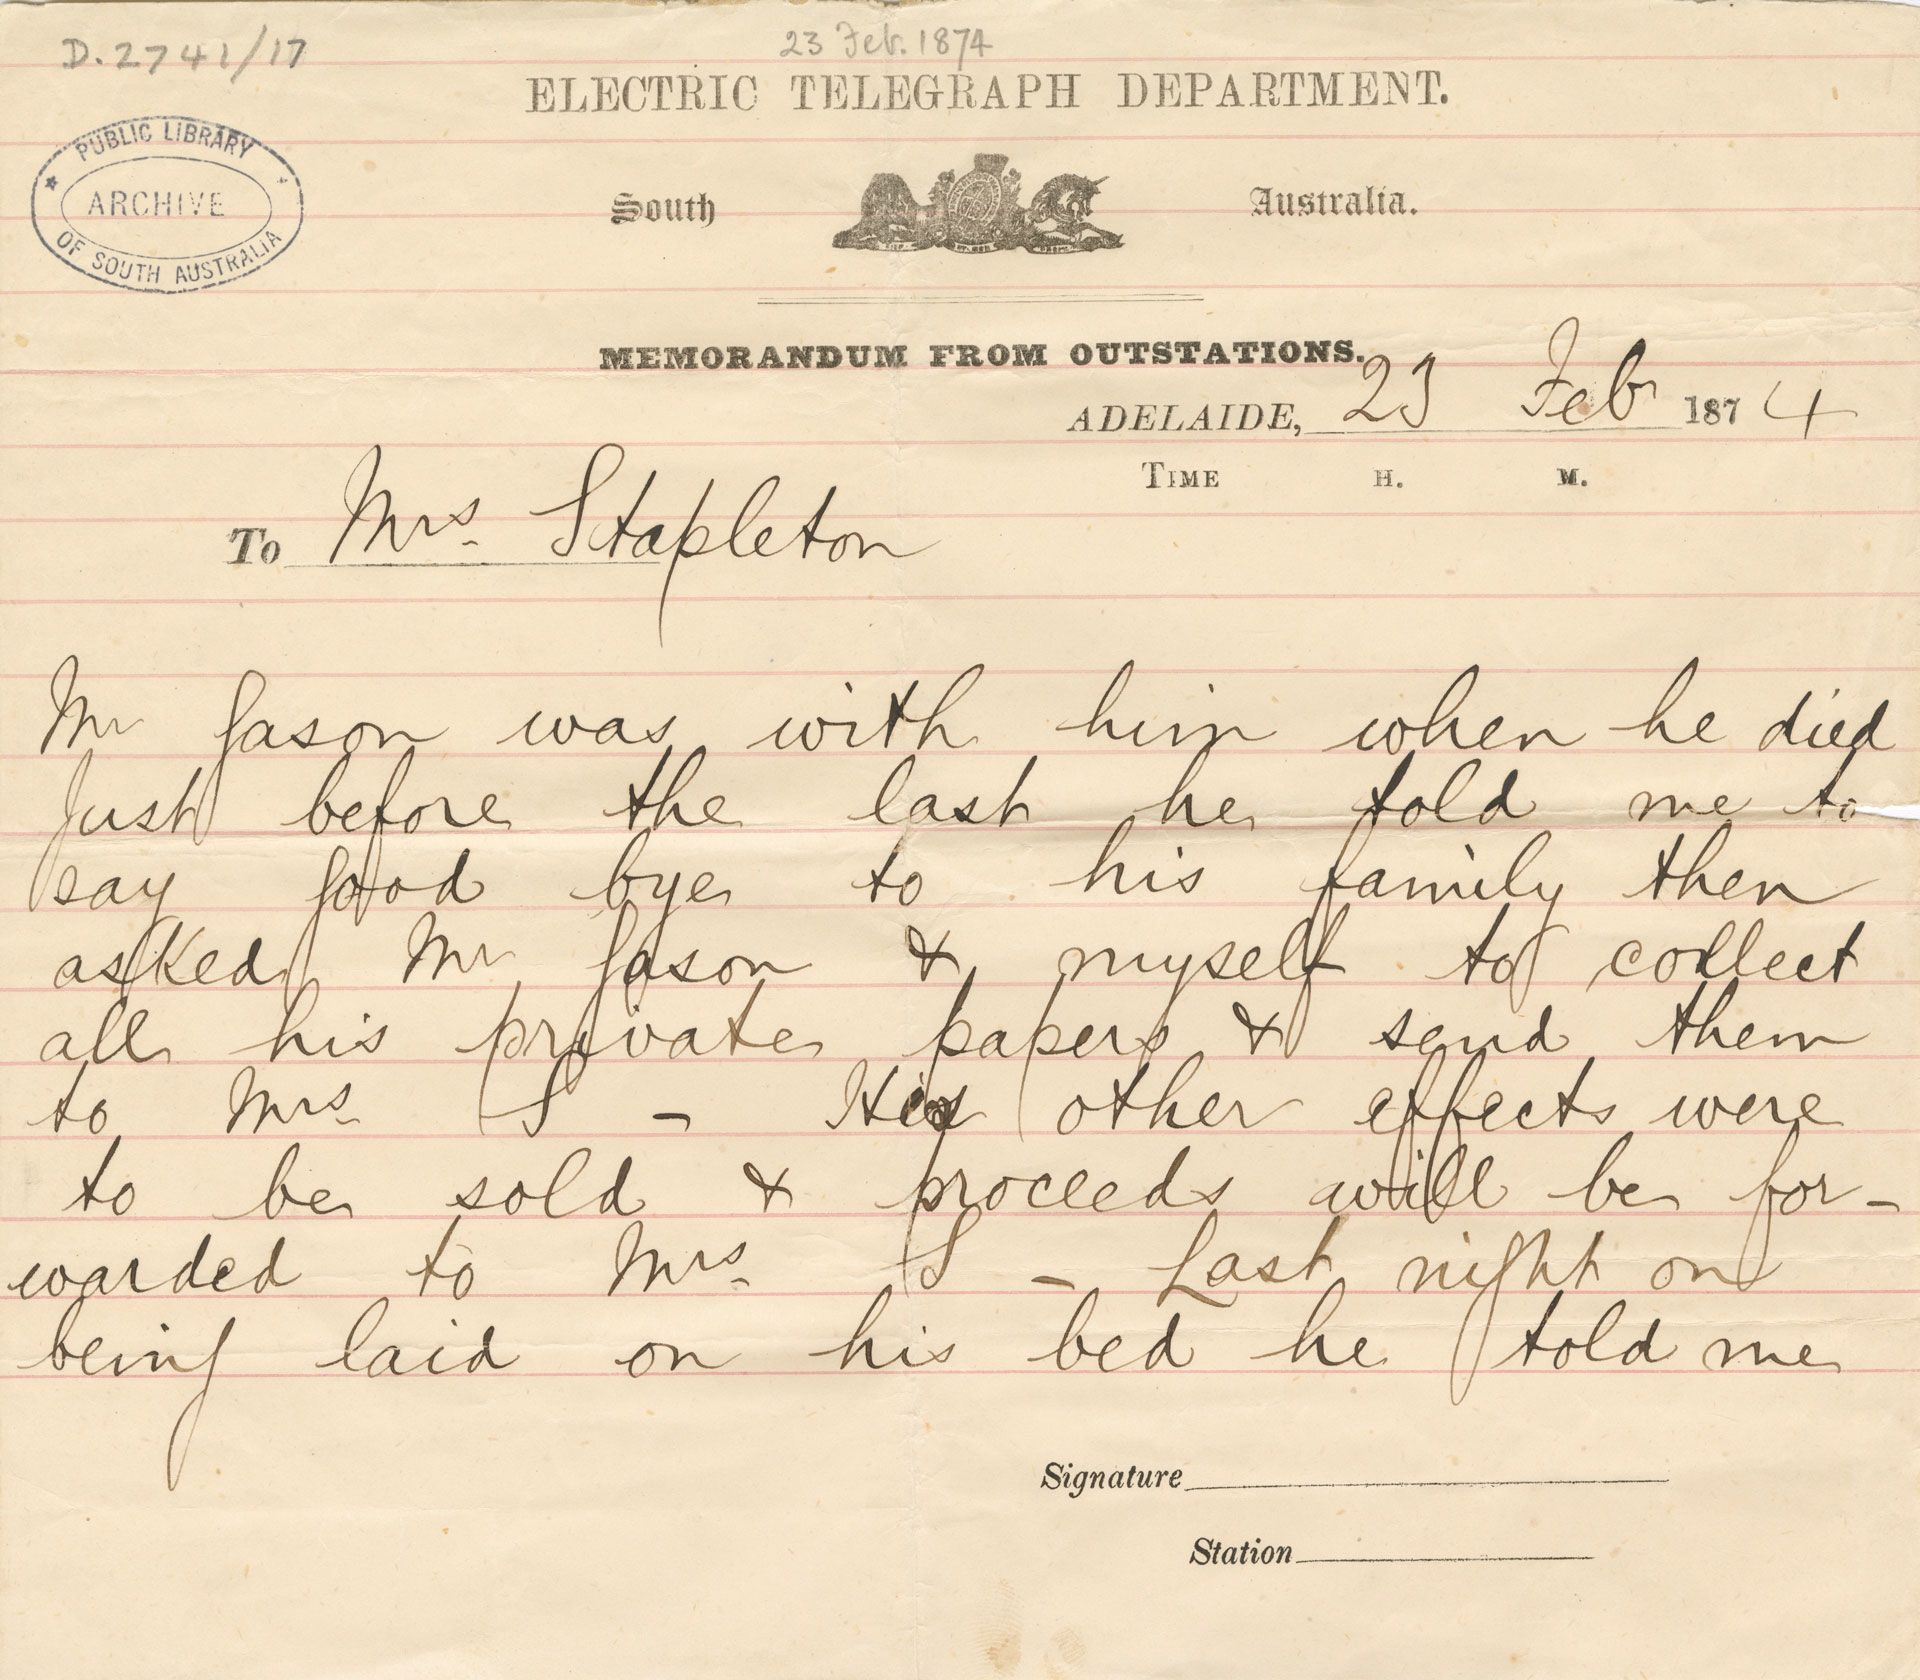 D.2741/17
23 Feb. 1874
ELECTRIC TELEGRAPH DEPARTMENT.
PUBLIC LIBRARY
ARCHIVE
OF SOUTH AUSTRALIA
South Australia.
MEMORANDUM FROM OUTSTATIONS.
ADELAIDE, 23 Feb 1874
TIME H. M.
To Mrs. Stapleton
Mr Gason was with him when he died
Just before the last he told me to
say good bye to his family then
asked Mr Gason & myself to collect
all his private papers & send them
to Mrs. S - His other effects were
to be sold & proceeds will be for-
warded to Mrs. S - Last night on
being laid on his bed he told me
Signature
Station